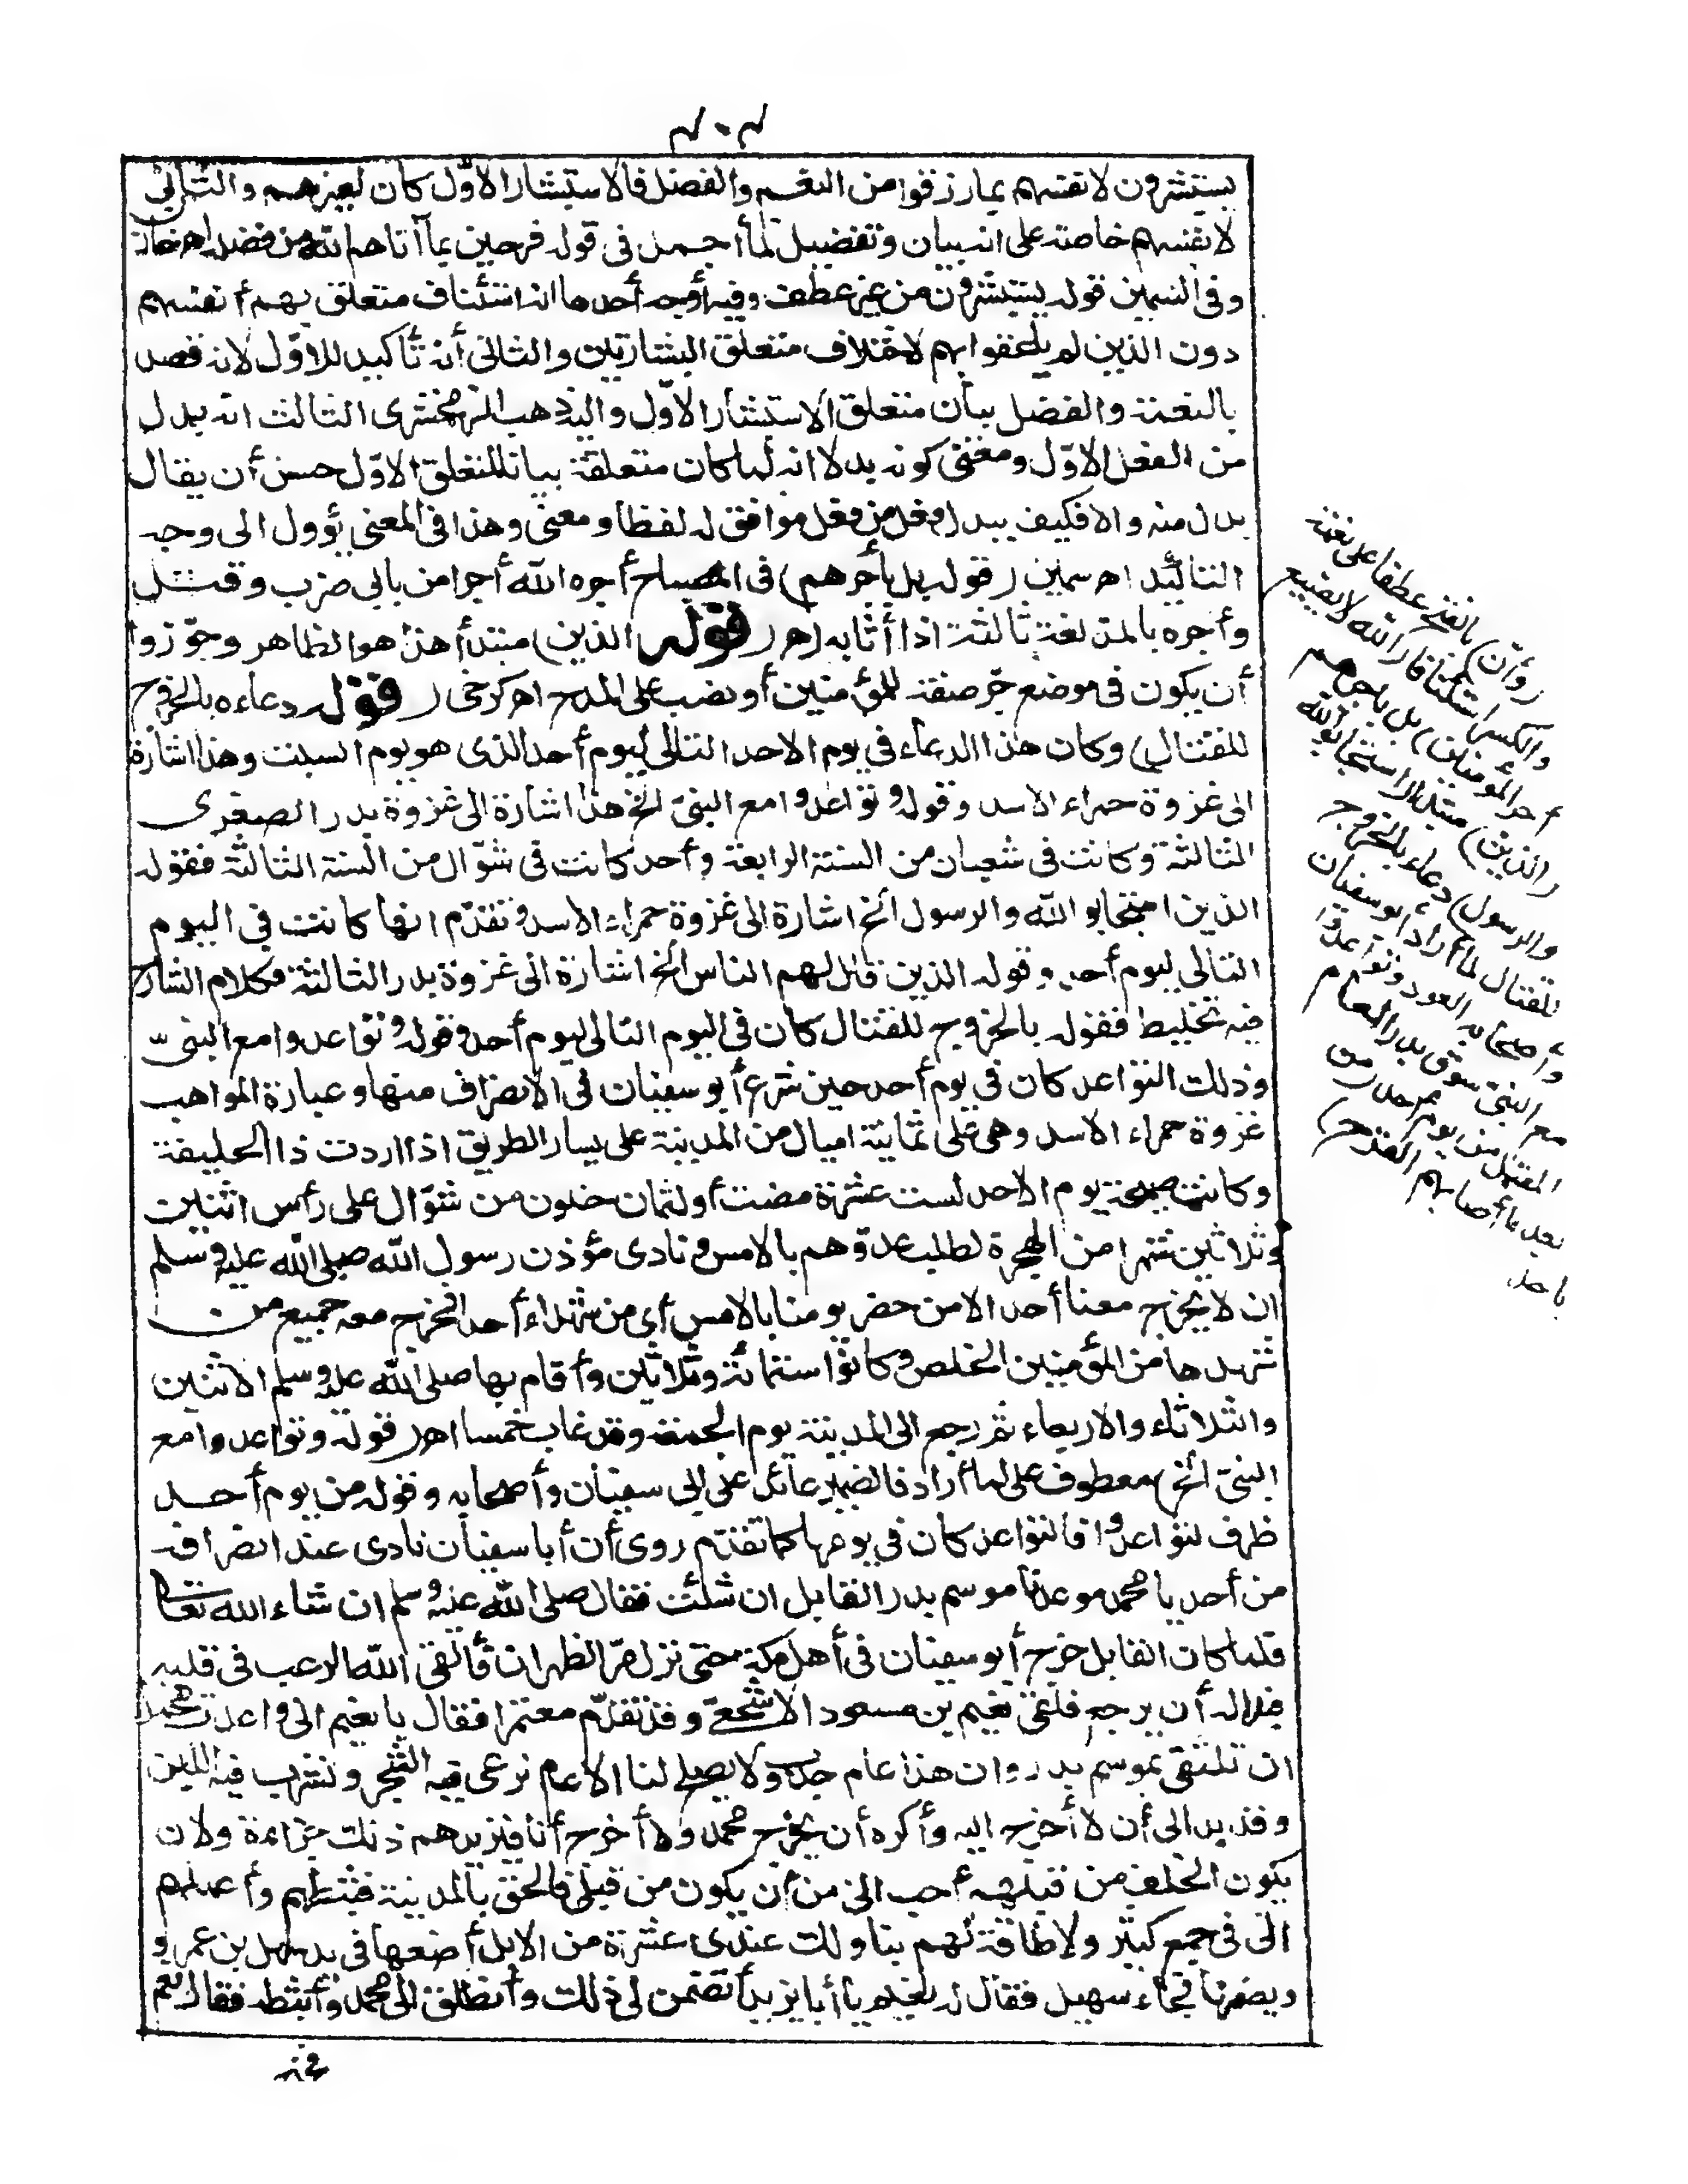 ٣٠٣
يستبشرون لانفسهم بما رزقوا من النعم والفضل فالاستبشار الاوّل كان لغيرهم والثانى
لانفسهم خاصة على انه بيان وتفصيل لما أجمل فى قوله فرحين بما آتاهم الله من فضله اهـ خازن
وفى السمين قوله يستبشرون من غير عطف وفيه أوجه أحدها انه استئناف متعلق بهم أنفسهم
دون الذين لم يلحقوا بهم لاختلاف متعلق البشارتين والثانى أنه تأكيد للاوّل لانه قصد
بالنعمة والفضل بيان متعلق الاستبشار الاوّل واليه ذهب الزمخشرى الثالث انه بدل
من الفعل الاوّل ومعنى كونه بدلا انه لما كان متعلقه بيانا للمتعلق الاوّل حسن أن يقال
بدل منه والا فكيف يبدل فعل من فعل موافق له لفظا ومعنى وهذا فى المعنى يؤول الى وجه
التأكيد اهـ سمين (قوله بل يأجرهم) فى المصباح أجره الله أجرا من بابى ضرب وقتل
وأجره بالمد لغة ثالثة اذا أثابه اهـ (قوله الذين) مبتدأ هذا هو الظاهر وجوّزوا
أن يكون فى موضع جرّ صفة للمؤمنين أو نصب على المدح اهـ كرخى (قوله دعاءه بالخروج
للقتال) وكان هذا الدعاء فى يوم الاحد التالى ليوم أحد الذى هو يوم السبت وهذا اشارة
الى غزوة حمراء الاسد وقوله وتواعدوا مع النبىّ الخ هذا اشارة الى غزوة بدر الصغرى
الثالثة وكانت فى شعبان من السنة الرابعة وأحد كانت فى شوّال من السنة الثالثة فقوله
الذين استجابوا لله والرسول الخ اشارة الى غزوة حمراء الاسد وتقدّم انها كانت فى اليوم
التالى ليوم أحد وقوله الذين قال لهم الناس الخ اشارة الى غزوة بدر الثالثة فكلام الشارح
فيه تخليط فقوله بالخروج للقتال كان فى اليوم التالى ليوم أحد وقوله وتواعدوا مع النبىّ
وذلك التواعد كان فى يوم أحد حين شرع أبو سفيان فى الانصراف منها وعبارة المواهب
غزوة حمراء الاسد وهى على ثمانية اميال من المدينة على يسار الطريق اذا اردت ذا الحليفة
وكانت صبيحة يوم الاحد لست عشرة مضت أو لثمان خلون من شوّال على رأس اثنين
وثلاثين شهرا من الهجرة لطلب عدوّهم بالامس ونادى مؤذن رسول الله صلى الله عليه وسلم
ان لا يخرج معنا أحد الا من حضر يومنا بالامس أى من شهداء أحد فخرج معه جميع من
شهدها من المؤمنين الخلص وكانوا ستمائة وثلاثين وأقام بها صلى الله عليه وسلم الاثنين
والثلاثاء والاربعاء ثم رجع الى المدينة يوم الجمعة وقد غاب خمسا اهـ (قوله وتواعدوا مع
النبىّ الخ) معطوف على لما أراد فالضمير عائد على أبى سفيان وأصحابه وقوله من يوم أحد
ظرف لتواعدوا فالتواعد كان فى يومها كما تقدّم روى أن أبا سفيان نادى عند انصرافه
من أحد يا محمد موعدنا موسم بدر القابل ان شئت فقال صلى الله عليه وسلم ان شاء الله تعالى
فلما كان القابل خرج أبو سفيان فى أهل مكة حتى نزل مرّ الظهران فألقى الله الرعب فى قلبه
فبدا له أن يرجع فلقى نعيم بن مسعود الاشجعىّ وقد تقدّم معتمرا فقال يا نعيم انى واعدت محمدا
ان نلتقى بموسم بدر وان هذا عام جدب ولا يصلح لنا الا عام نرعى فيه الشجر ونشرب فيه اللبن
وقد بدا لى أن لا أخرج اليه وأكره أن يخرج محمد ولا أخرج أنا فيزيدهم ذلك جراءة ولان
يكون الخلف من قبلهم أحب الىّ من أن يكون من قبلى فالحق بالمدينة فثبطهم وأعلمهم
انى فى جمع كثير ولا طاقة لهم بنا ولك عندى عشرة من الابل أضعها فى يد سهيل بن عمرو
ويضمنها فجاء سهيل فقال له نعيم يا أبا يزيد أتضمن لى ذلك وأنطلق الى محمد وأثبطه فقال نعم
(وأنّ) بالفتح عطفا على نعمة
والكسر استئنافا (الله لا يضيع
أجر المؤمنين) بل يأجرهم
(الذين) مبتدأ (استجابوا لله
والرسول) دعاءه بالخروج
للقتال لما أراد أبو سفيان
وأصحابه العود وتواعدوا
مع النبىّ سوق بدر العام
المقبل من يوم أحد (من
بعد ما أصابهم القرح)
باحد